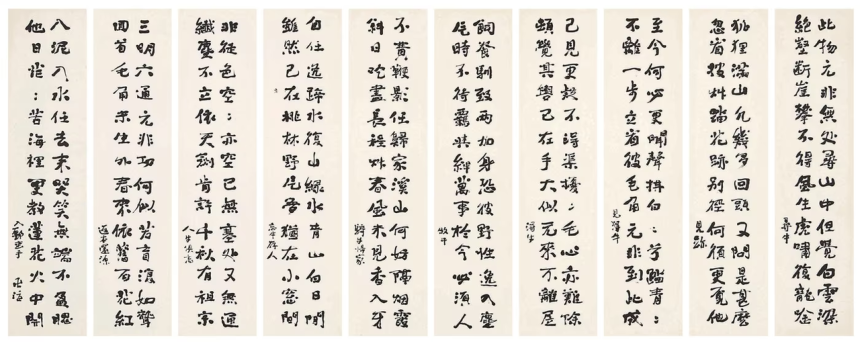 此物元非無處尋山中但覺白雲深
絕壑斷崖攀不得風生虎嘯復龍吟
尋牛
狐狸滿山凡幾多回頭又問是甚麼
忽看披艸踏花跡別徑何須更覓他
見跡
至今何必更聞聲拌白：兮踏青：
不離一步立看彼毛角元非到此成
見牛
已見更疑不得渠擾：毛心亦難除
頓覺其轡已在手大似元來不離居
得牛
飼餐馴致兩加身恐彼野性逸入塵
乞時不待羈與絆萬事於今必須人
牧牛
不費鞭影任歸家溪山何妨隔烟霞
斜日吃盡長程艸春風未見香入牙
騎牛歸家
白任逸蹄水復山綠水青山白日閒
雖然已在桃林野片雲猶在小窓間
忘牛存人
非徒色空：亦空已無塞處又無通
纖塵不立依天劍肯許千秋有祖宗
人牛俱忘
三明六通元非功何似若盲復如聾
回首毛角未生外春來依舊百花紅
返本還源
入泥入水任去來哭笑無端不盈腮
他日茫：苦海裡更教蓮花火中開
入鄽垂手